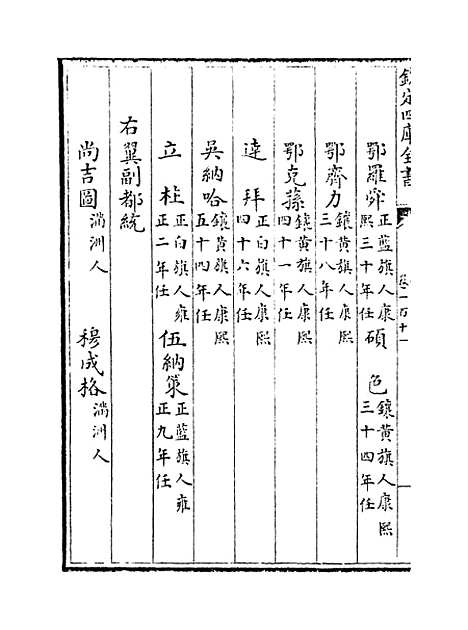 欽定四庫全書
卷一百十一
鄂羅舜正藍旗人康熙三十年任 碩色鑲黃旗人康熙三十四年任
鄂齊力鑲黃旗人康熙三十八年任
鄂克蓀鑲黃旗人康熙四十一年任
達拜正白旗人康熙四十六年任
吳納哈鑲黃旗人康熙五十四年任
立柱正白旗人雍正二年任 伍納策正藍旗人雍正九年任
右翼副都統
尚吉圖滿洲人 穆成格滿洲人